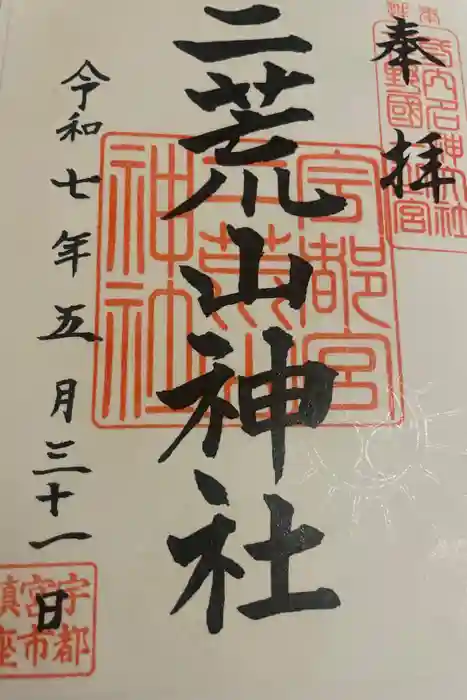 奉拝
二荒山神社
令和七年五月三十一日
宇都宮
二荒山
神社
宇都
宮市
鎮座